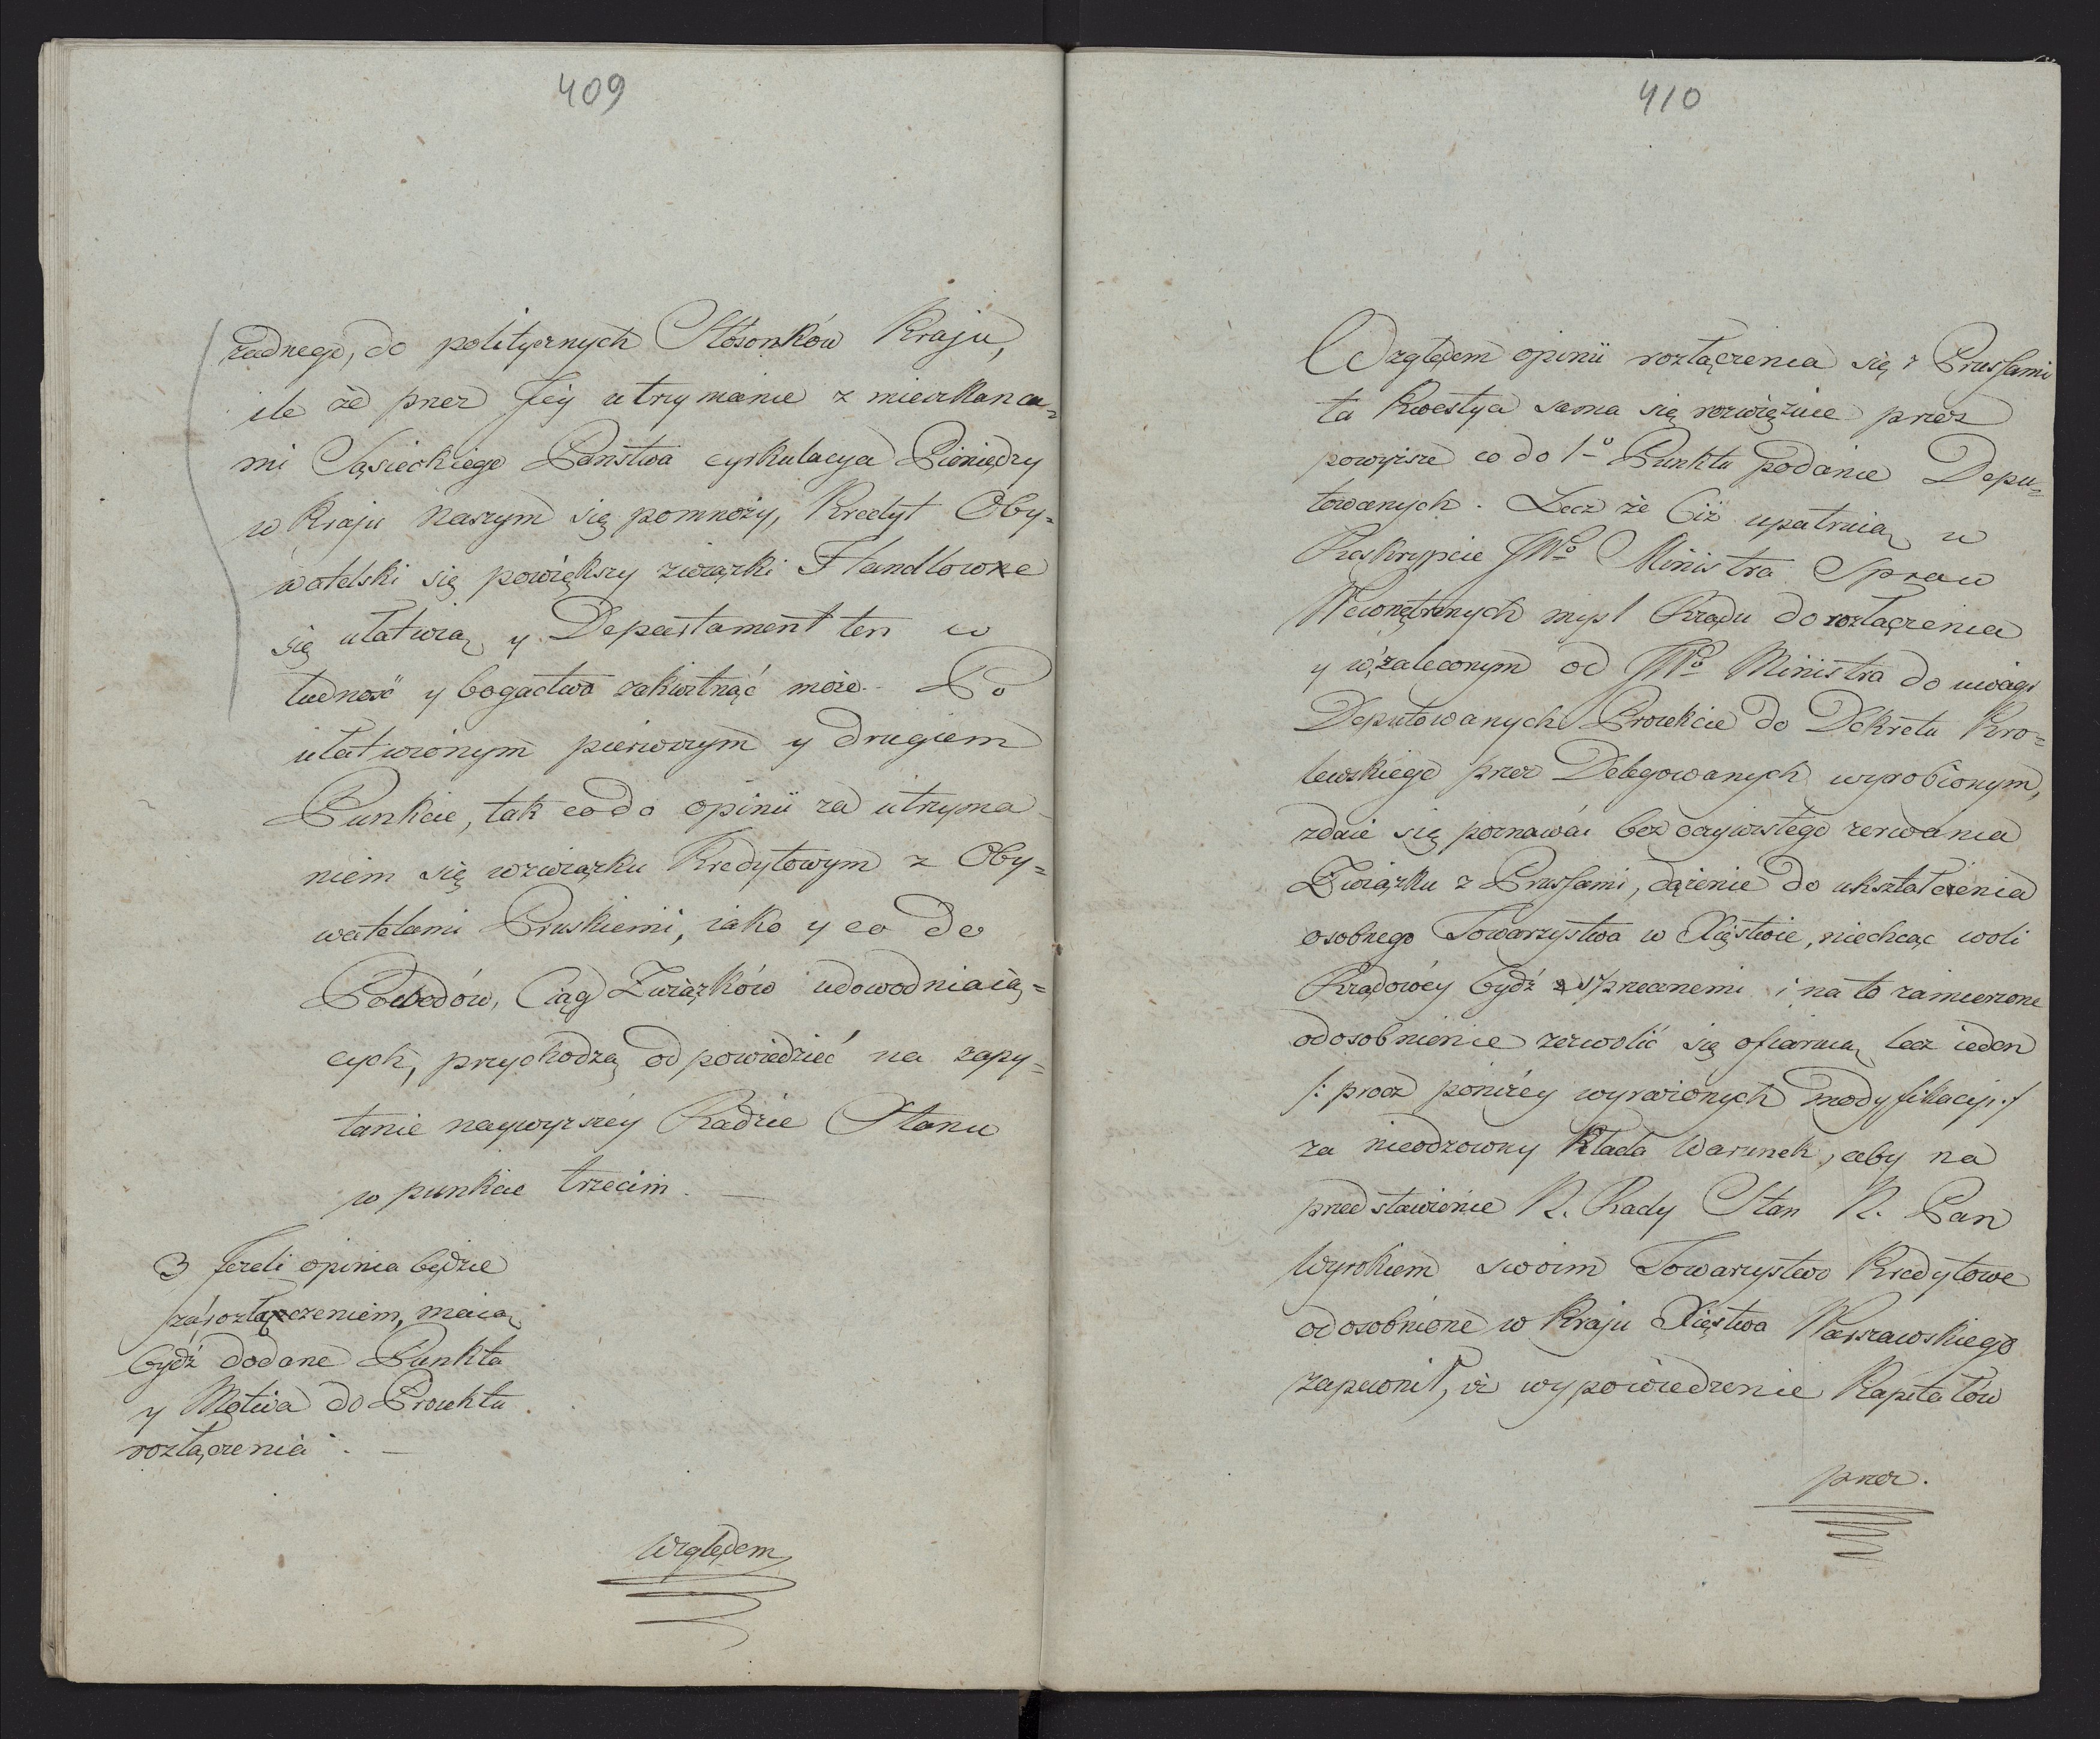 409
żadnego, do politycznych Stósonków Kraju,
ile że przez Jéy utrzymanie z mieszkanca=
mi Sąsieckiego Państwa cyrkulacya Pieniędzy
w Kraju Naszym się pomnoży, Kredyt Oby=
watelski się powiększy związki Handlowne
się ułatwią, y Departament ten w
ludność y bogactwo zakwitnąć może. Po
ułatwionym pierwszym y drugiem
Punkcie, tak codo opinii za utrzyma
niem się wzwiązku Kredytowym z Oby=
watelami Pruskiemi, iako y co do
Powodów, Ciąg Związków udowodniaią=
cych, przychodzą odpowiedzieć na zapy=
tanie naywyższéy Radzie Stanu
w punkcie trzecim. —
3 Jezeli opinia będzie
za rozłączeniem, maią
bydź dodane Punkta
y Motiva do Proiektu
rozłączenia. —
Względem
410
Względem opinii rozłączenia się z Prussami
ta Kwestya sama się rozwięzuie przez
powyższe co do 1º Punktu podanie Depu=
towanych. Lecz że Ciż upatruią w
Reskrypcie JWº Ministra Spraw
Wewnętrznych mysl Rządu do rozłączenia
y w zaleconym od JWº Ministra do uwagi
Deputowanych Proiekcie do Dekretu Kro=
lewskiego przez Delegowanych wyrobionym,
zdaie się poznawać bez oczywistego zerwania
Związku z Prussami, dążenie do ukształcenia
osobnego Towarzystwa w Xięstwie, niechcąc woli
Rządowéy bydź sprzecznemi i na to zamierzone
odosobnienie zezwolić się ofiaruią, lecz ieden
/: procz poniżéy wyrażonych modyfikacyi :/
za nieodzowny kłada Warunek, aby na
przedstawienie N. Rady Stan N. Pan
Wyrokiem swoim Towarzystwo Kredytowe
odosobnione w Kraju Xięstwa Warszawskiego
zapewnił, iż wypowiedzenie Kapitałów
przez.